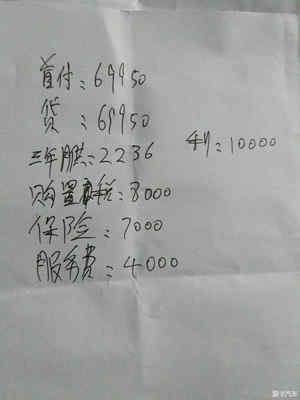 首付：69950
贷：69950
三年月供：2236
利：10000
购置税：8000
保险：7000
服务费：4000